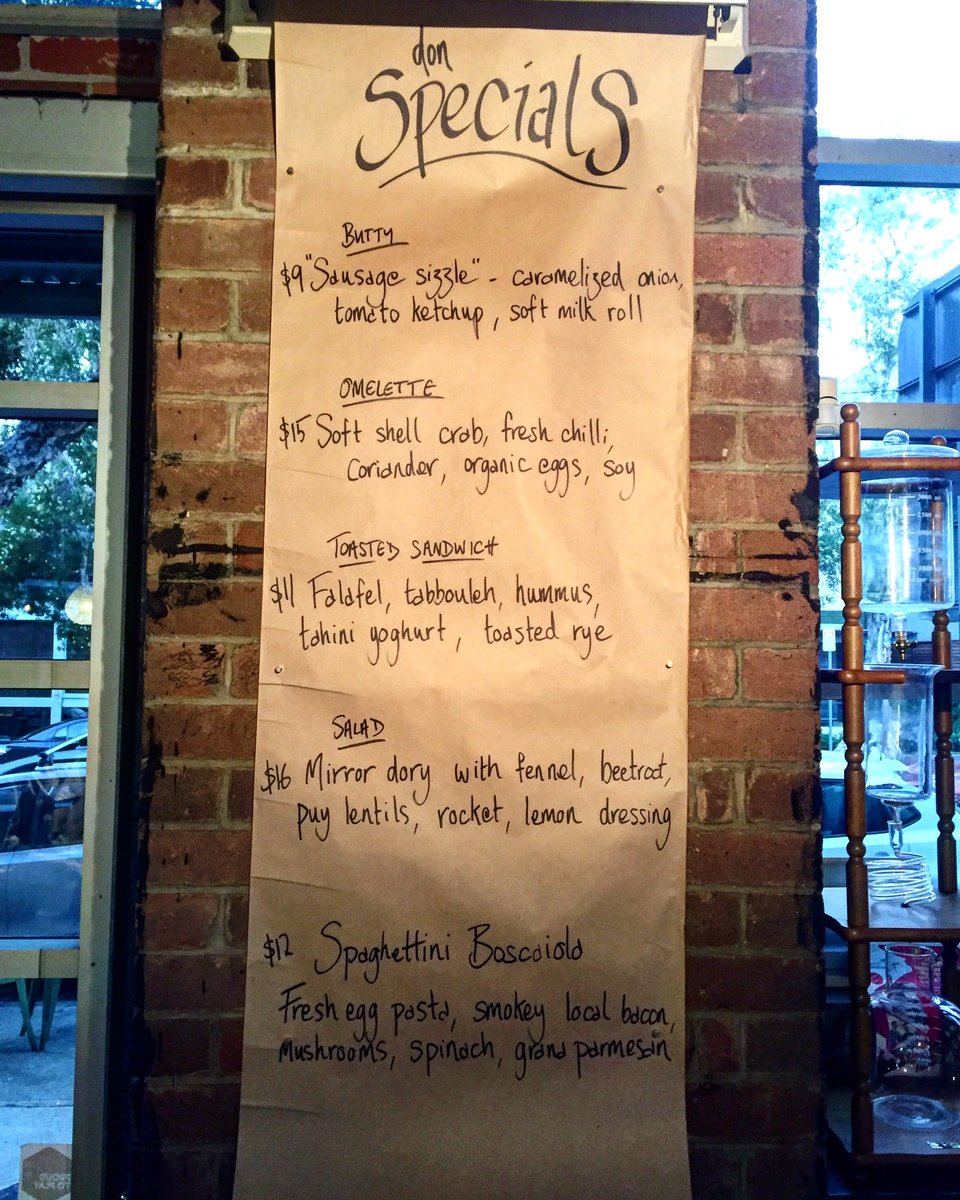 don
Specials
BUTTY
$9 "Sausage sizzle" - caramelized onion,
tomato ketchup, soft milk roll
OMELETTE
$15 Soft shell crab, fresh chilli,
coriander, organic eggs, soy
TOASTED SANDWICH
$11 Falafel, tabbouleh, hummus,
tahini yoghurt, toasted rye
SALAD
$16 Mirror dory with fennel, beetroot,
puy lentils, rocket, lemon dressing
$12 Spaghettini Boscaiola
Fresh egg pasta, smokey local bacon,
mushrooms, spinach, grana parmesan
PROUD
TO PLAY
3000 ml
2500
2000
1500
1000